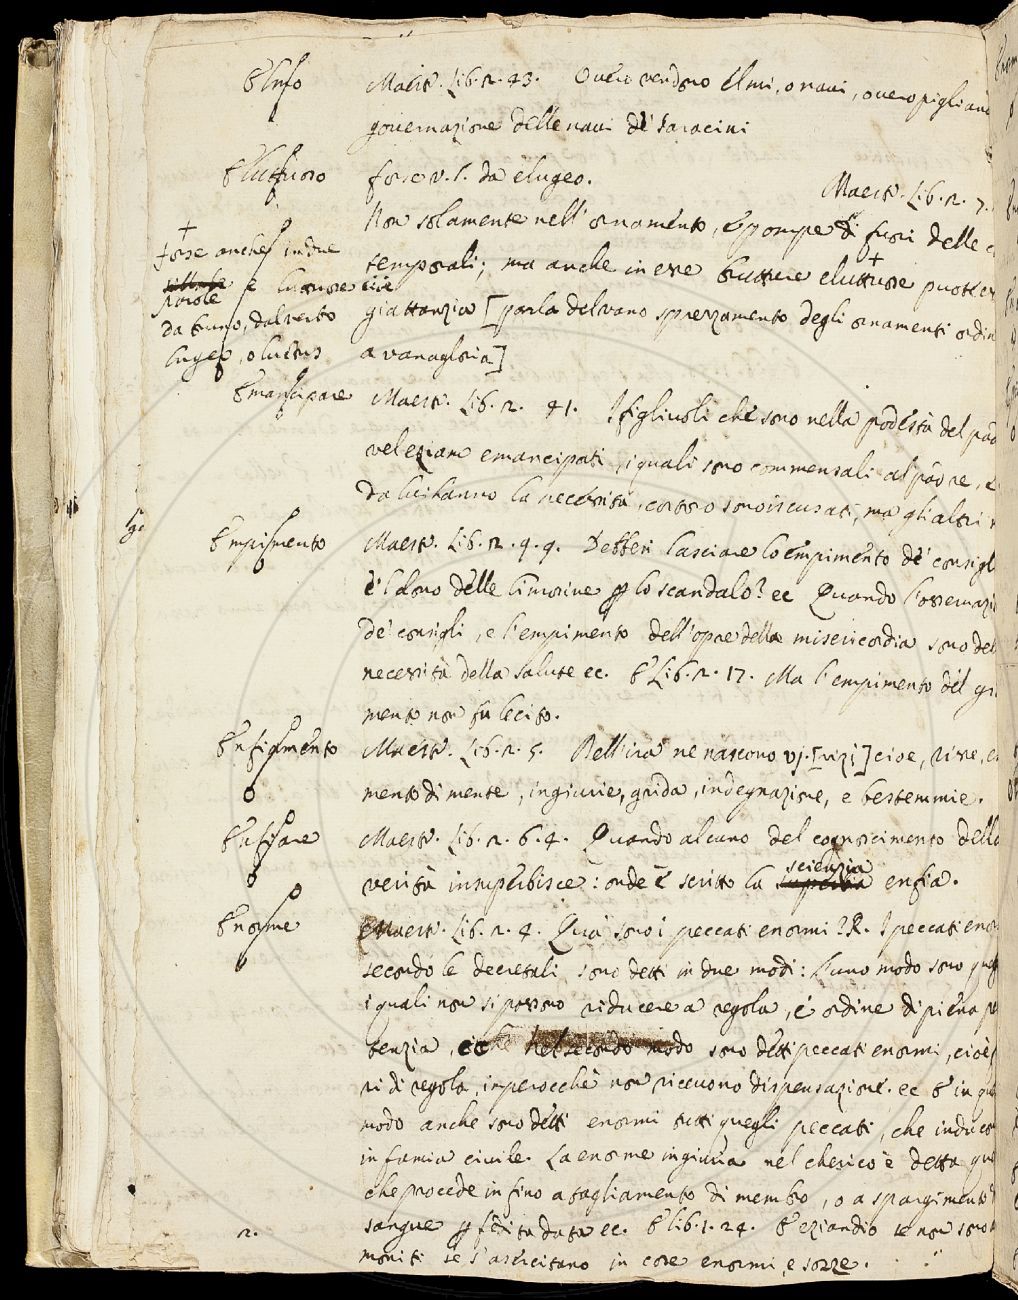 Elmo Maestr. Lib. 2. 43. Overo vendono elmi, o navi, overo pigliano
governazione delle navi de' Saracini
Eluttuoso forse v. l. da elugeo. Maestr. Lib. 2. 7.
Non solamente nell' ornamento, e pompe di fuori delle c
temporali; ma anche in esse brutture eluttuose puote es
giattanzia [parla del vano sprezzamento degli ornamenti ordin
a vanagloria]
+ forse anche in due
sillabe parole e luttuose cioè
da bruno, dal verbo
lugeo, o luctus
Emancipare Maestr. Lib. 2. 41. I figliuoli che sono nella podestà del pad
vel eziam emancipati, i quali sono commensali al padre, e
da lui hanno la necessità, costoro sono iscusati, ma gli altri n
Empimento Maestr. Lib. 2. 9. 9. Debbesi lasciare lo empimento de' consigl
e 'l dono delle limosine per lo scandalo? ec Quando l'osservazi
de' consigli, e l'empimento dell' opre della misericordia sono del
necessità della salute ec. E Lib. 2. 17. Ma l'empimento del giu
mento non fu lecito.
Enfiamento Maestr. Lib. 2. 5. Dell' ira ne nascono vj. [vizi] cioè, risse, en
mento di mente, ingiurie, grida, indegnazione, e bestemmie.
Enfiare Maestr. Lib. 2. 6. 4. Quando alcuno del cognoscimento della
verità insuperbisce: onde è scritto la superbia scienzia enfia.
Enorme Maestr. Lib. 2. 4. Qua' sono i peccati enormi? R. I peccati enor
secondo le decretali sono detti in due modi: l'uno modo sono queg
i quali non si possono riducere a regola, e ordine di piena pe
tenzia, ec Nel secondo modo sono detti peccati enormi, cioè
ri di regola, imperocchè non ricevono dispensazione. ec E in que
modo anche sono detti enormi tutti quegli peccati, che inducon
infamia civile. La enorme ingiuria nel cherico è detta que
che procede infino a tagliamento di membro, o a spargimento
sangue per fedita data ec. E lib. 1. 24. E eziandio se non sono
moniti se s'asercitano in cose enormi, e sozze.
2.